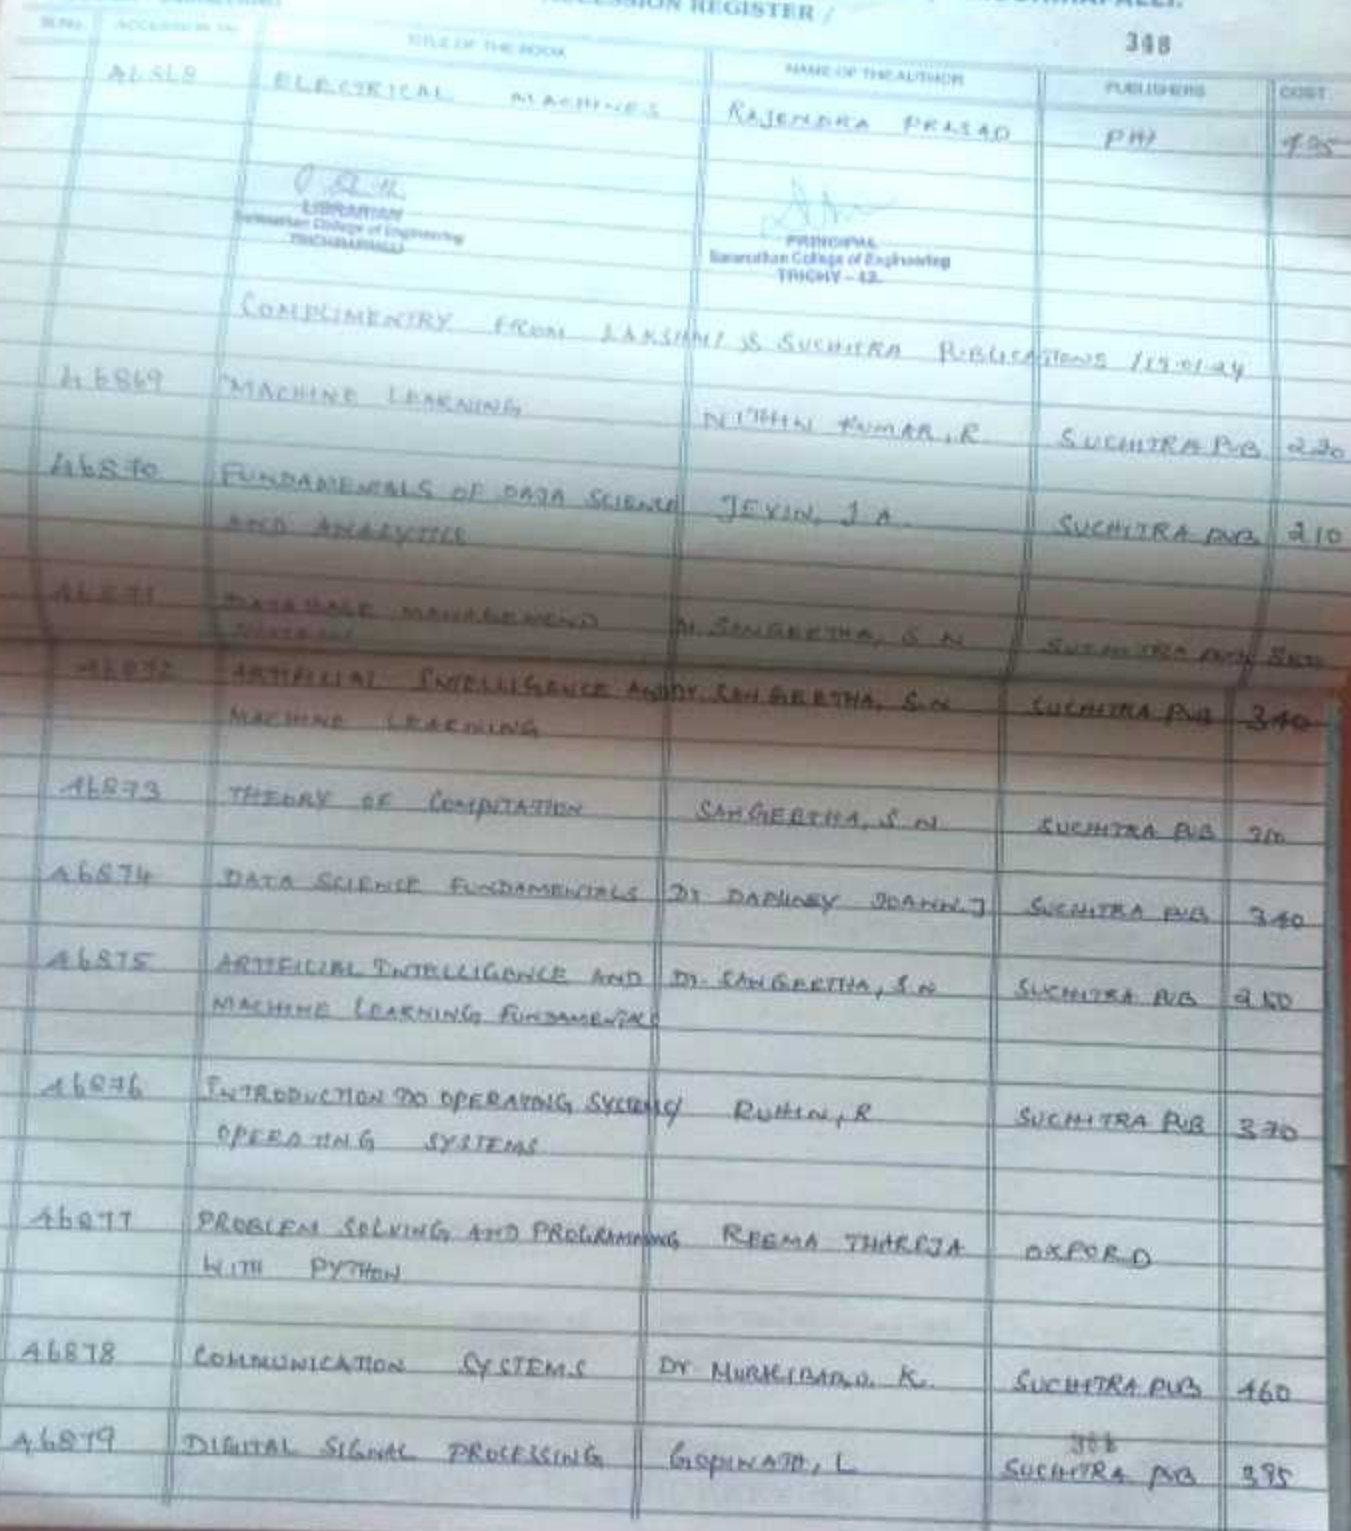 ACCESSION REGISTER /
348
SI.No ACCESSION No. TITLE OF THE BOOK NAME OF THE AUTHOR PUBLISHERS COST
46868 ELECTRICAL MACHINES RAJENDRA PRASAD PHI
LIBRARIAN
Saranathan College of Engineering
TIRUCHIRAPPALLI
PRINCIPAL
Saranathan College of Engineering
TRICHY - 12.
COMPLIMENTRY FROM LAKSHMI & SUCHITRA PUBLICATIONS /19.01.24
46869 MACHINE LEARNING NITHIN KUMAR, R SUCHITRA PUB 220
46870 FUNDAMENTALS OF DATA SCIENCE JEVIN, J A. SUCHITRA PUB 210
AND ANALYTICS
46871 DATABASE MANAGEMENT SANGEETHA, S N SUCHITRA PUB
46872 ARTIFICIAL INTELLIGENCE AND Dr. SANGEETHA, S.N SUCHITRA PUB 340
MACHINE LEARNING
46873 THEORY OF COMPUTATION SANGEETHA, S N SUCHITRA PUB
46874 DATA SCIENCE FUNDAMENTALS Dr DAPHNEY JOANN.J SUCHITRA PUB 340
46875 ARTIFICIAL INTELLIGENCE AND Dr. SANGEETHA, S.N SUCHITRA PUB
MACHINE LEARNING FUNDAMENTALS
46876 INTRODUCTION TO OPERATING SYSTEMS/ SUCHITRA PUB 370
OPERATING SYSTEMS
46877 PROBLEM SOLVING AND PROGRAMMING REEMA THAREJA OXFORD
WITH PYTHON
46878 COMMUNICATION SYSTEMS Dr K. SUCHITRA PUB 460
46879 DIGITAL SIGNAL PROCESSING GOPINATH, L SUCHITRA PUB 395